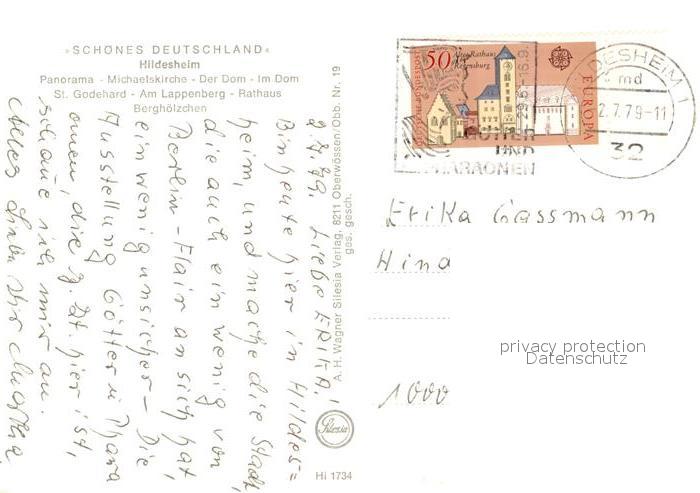 »SCHÖNES DEUTSCHLAND«
Hildesheim
Panorama - Michaelskirche - Der Dom - Im Dom
St. Godehard - Am Lappenberg - Rathaus
Berghölzchen
2.7.79. Liebe ERIKA!
Bin heute hier in Hildes=
heim, und mache die Stadt,
die auch ein wenig von
Berlin-Flair an sich hat,
ein wenig unsicher - Die
Ausstellung Götter u. Phara
onen, die z. Zt. hier ist,
schaue ich mir an.
Alles Liebe Dir
A. H. Wagner Silesia Verlag, 8211 Oberwössen/Obb. Nr. 19
ges. gesch.
Silesia
Hi 1734
DEUTSCHE BUNDESPOST
50
Altes Rathaus
Regensburg
EUROPA
29.5.-16.9.
GÖTTER
UND
PHARAONEN
HILDESHEIM 1
md
2.7.79-11
32
Erika Gassmann
1000
privacy protection
Datenschutz